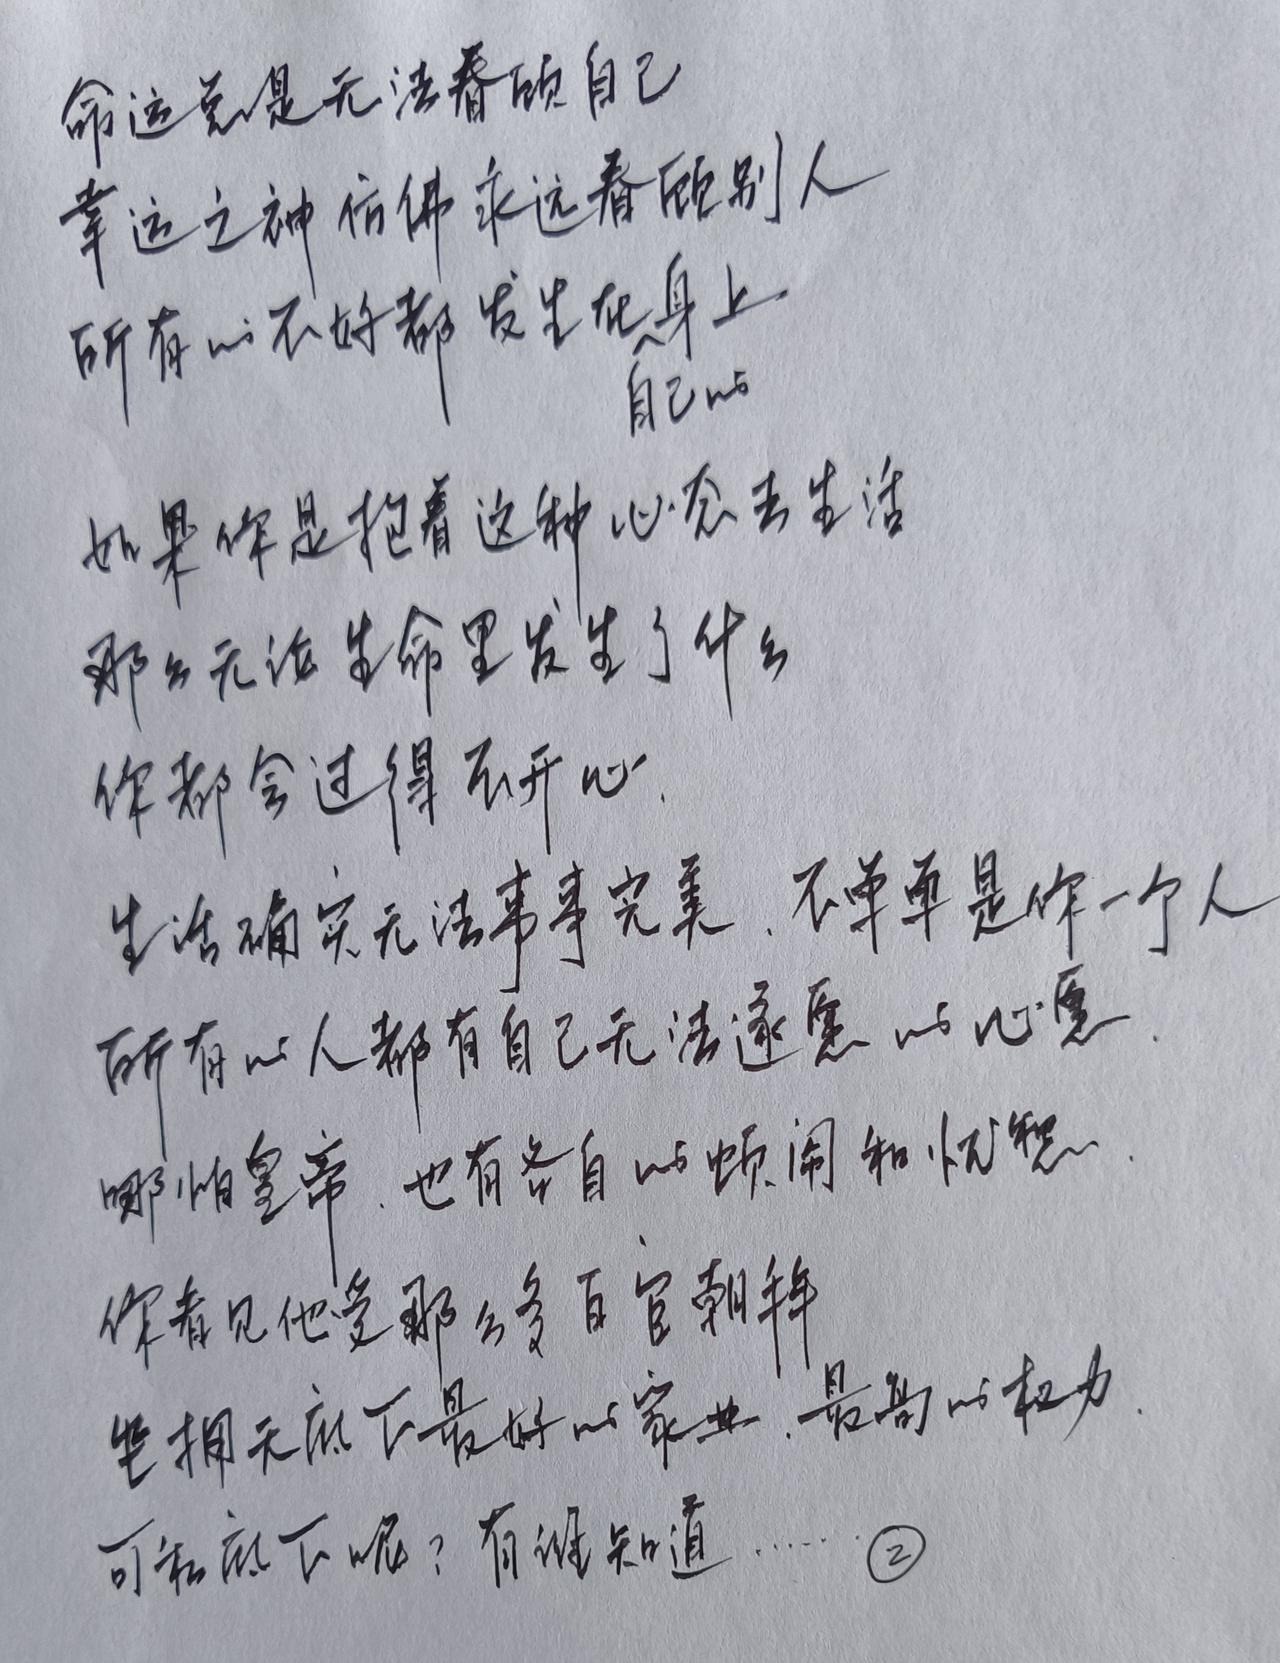 命运总是无法眷顾自己
幸运之神仿佛永远眷顾别人
所有的不好都发生在自己的身上
如果你是抱着这种心态去生活
那么无论生命里发生了什么
你都会过得不开心.
生活确实无法事事完美、不单单是你一个人
所有的人都有自己无法遂愿的心愿.
哪怕皇帝、也有各自的烦闹和忧愁.
你看见他受那么多百官朝拜
坐拥天底下最好的家业、最高的权力.
可私底下呢?有谁知道…… ②